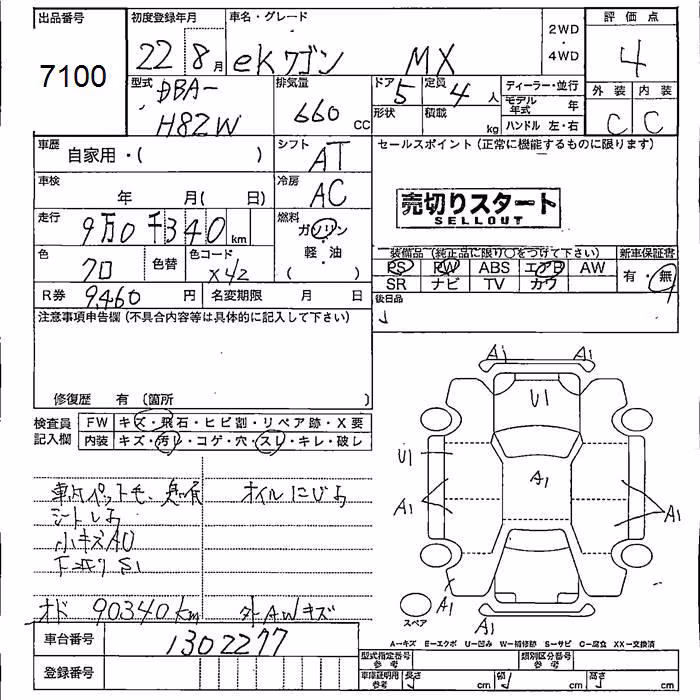 出品番号 初度登録年月 車名・グレード 2WD・4WD 評価点
7100 22 8月 eKワゴン MX 4
型式 DBA-H82W 排気量 660 CC ドア 5 定員 4人 ディーラー・並行 外装 内装
形状 積載 kg モデル年式 年 C C
ハンドル 左・右
車歴 自家用・( ) シフト AT セールスポイント(正常に機能するものに限ります)
車検 年 月( 日) 冷房 AC
売切りスタート
SELLOUT
走行 9万0千340km 燃料 ガソリン
軽・油
( )
色 クロ 色替 色コード X42
装備品(純正品に限り○をつけて下さい) 新車保証書
PS PW ABS エアB AW 有・無
SR ナビ TV カワ
R券 9460円 名変期限 月 日 後日品
注意事項申告欄(不具合内容等は具体的に記入して下さい)
修復歴 有(箇所 )
検査員記入欄 FW キズ・飛石・ヒビ割・リペア跡・X要
内装 キズ・汚レ・コゲ・穴・スレ・キレ・破レ
オイルにじみ
小キズAO
オド 90340km
外AWキズ
A1 A1
U1
U1
A1
A1 A1
A1
スペア
A1
A-キズ E-エクボ U-凹み W-補修跡 S-サビ C-腐食 XX-交換済
車台番号 1302277
登録番号
型式指定番号 参考 類別区分番号 参考
車庫証明用 参考 長さ cm 幅 cm 高さ cm